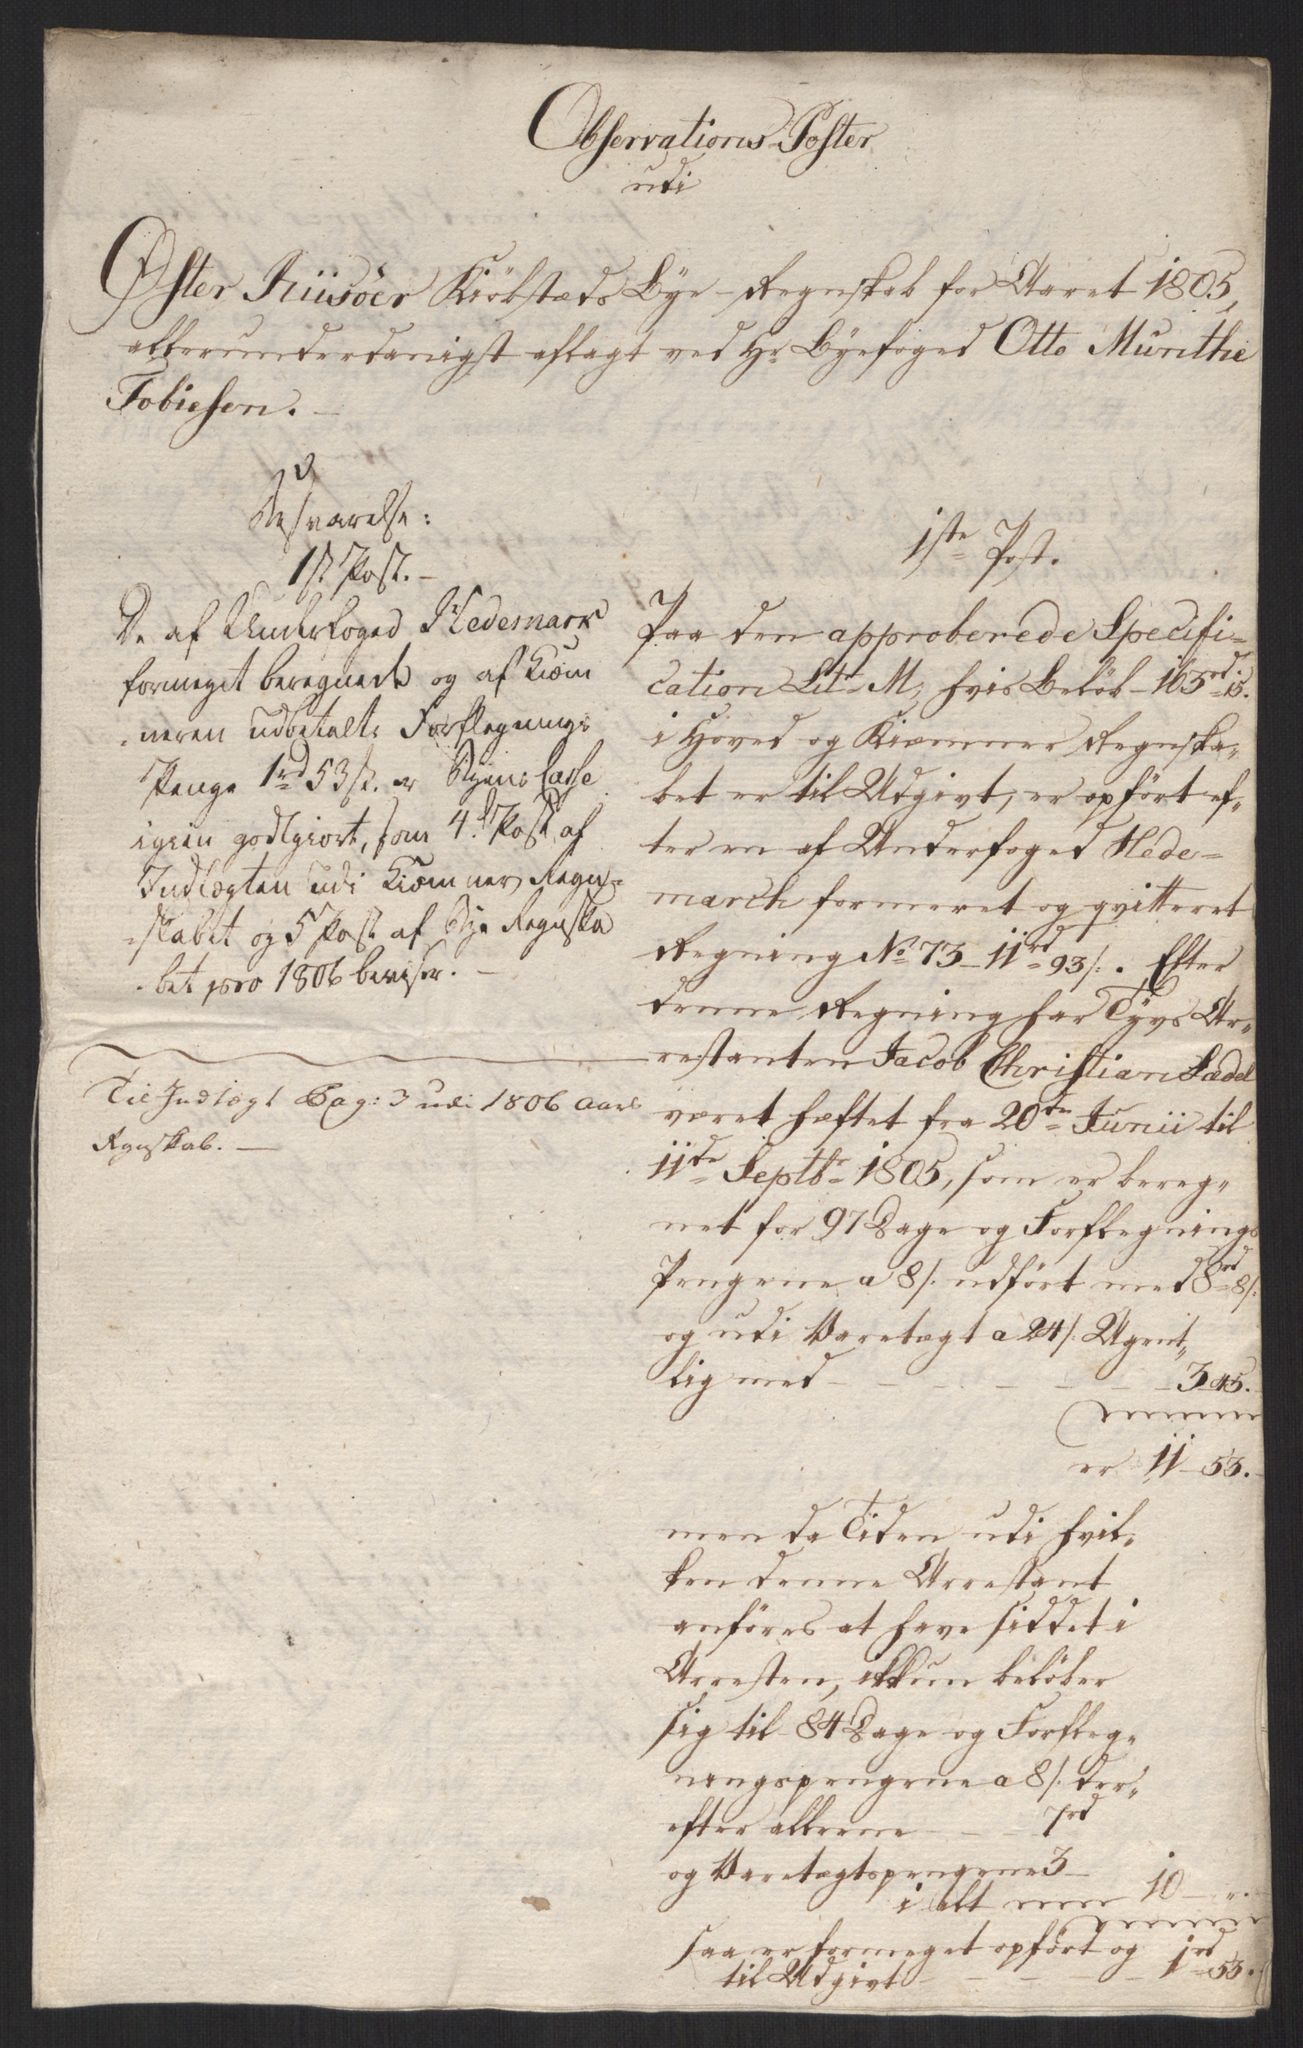 Observations-Poster
udi
Øster Riisöer Kiöbstæds Bye-Regnskab for Aaret 1805,
allerunderdanigst aflagt ved Hr Byefoged Otto Munthe
Tobiesen. –
Besvarelse:
1st Post. –
De af Underfoged Hedemark
formeget beregnede og af Kiøm
neren udbetalte Forflegnings
Penge 1rd 53s. er Byens Casse
igien godtgiort, som 4d Post af
Indtægten udi Kiømner Regn-
skabet og 5 Post af Bye Regnska
bet pro 1806 beviser. –
Til Indtægt Pag: 3 udi 1806 Aars
Regnskab. –
1ste Post.
Paa den approberede Specifi-
cation Litr M, hvis Beløb – 165rd 15.
i Hoved og Kiæmner Regnska-
bet er til Udgivt, er opført ef-
ter en af Underfoged Hede-
march formeret og qvitteret
Regning No 73 – 11rd 93/: . Efter
denne Regning har Tyvs Ar-
restanten Jacob Christian Sadel
været hæftet fra 20de Junii til
11de Septbr 1805, som er bereg-
net for 97 Dage og Forflegnings
Pengene a 8/: udført med 8rd 8/:
og udi Varetægt a 24/: Ugent-
lig med – – – – – – 3 45.
er 11 – 53.
men da Tiden udi hvil-
ken denne Arrestant
anføres at have siddet i
Arresten, ikkun beløber
sig til 84 Dage og Forfleg-
ningspengene a 8/: der-
efter alleene – – – 7rd
og Varetægtspengene 3 –
i alt 10 – ".
saa er formeget opført og
til Udgivt – – – – – 1rd 53.